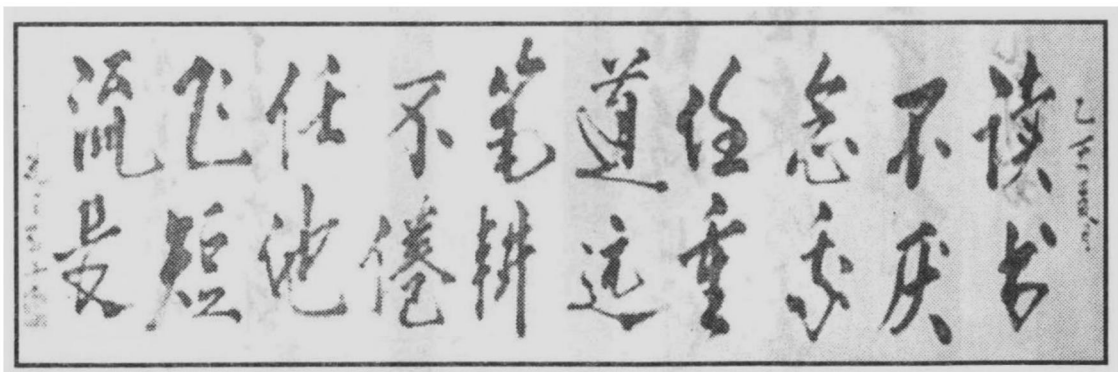 读书
不厌
念我
任重
道远
笔耕
不倦
任他
飞短
流長